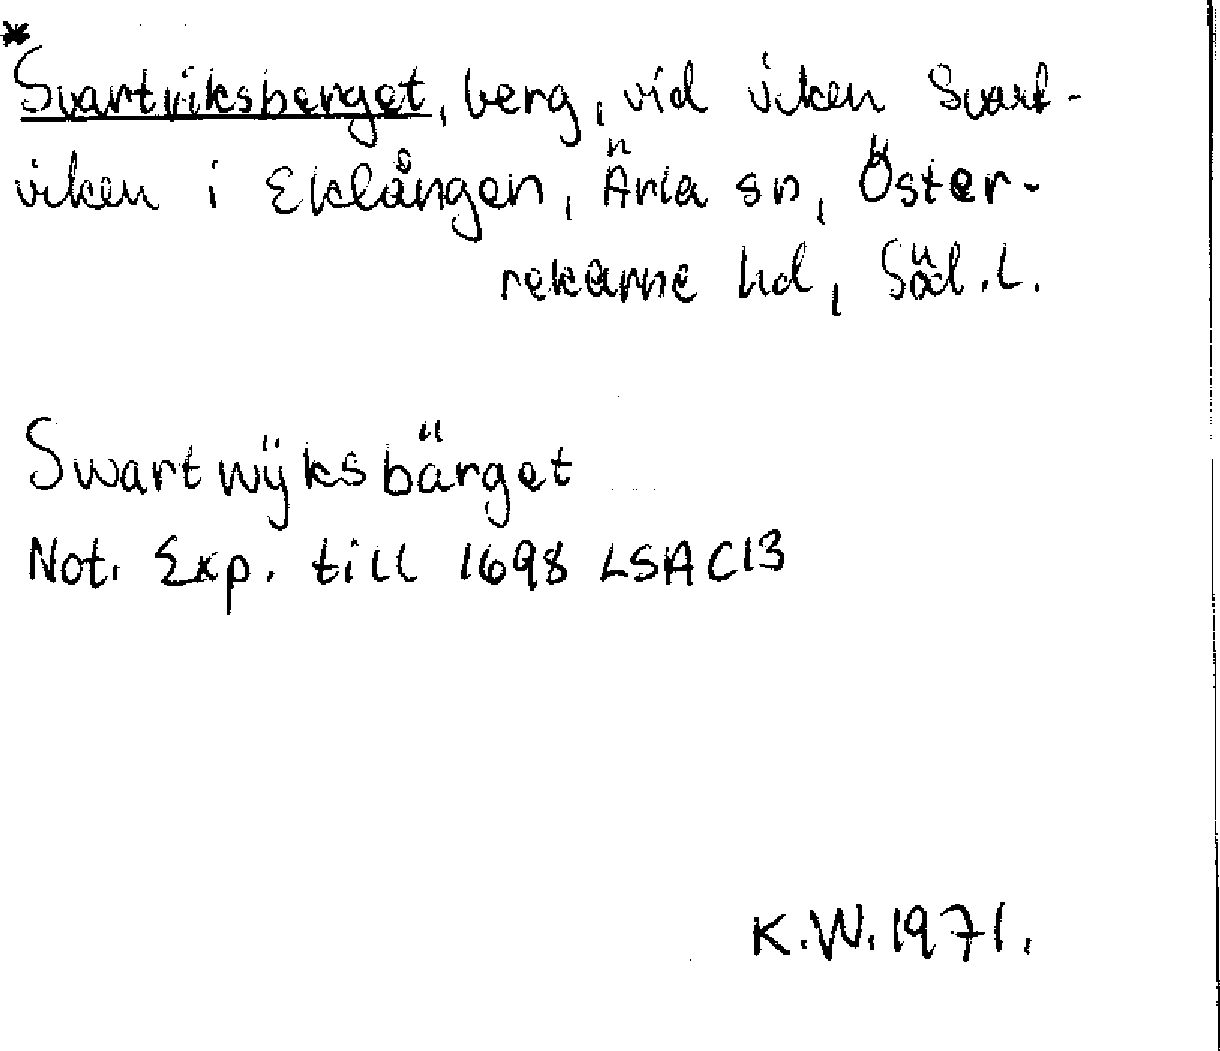 *
Svartviksberget, berg, vid viken Svart-
viken i Eklången, Ärla sn, Öster-
rekarne hd, Söd.L.
Swartwÿksbärget
Not. Exp. till 1698 LSA C13
K.W. 1971.